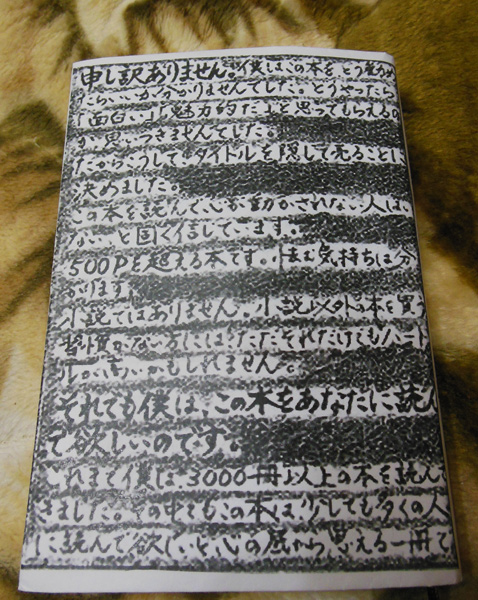 申し訳ありません。僕はこの本をどう勧め
たらいいか分かりませんでした。どうやったら
「面白い」「魅力的だ」と思ってもらえるの
か思いつきませんでした。
だからこうして、タイトルを隠して売ることに
決めました。
この本を読んで、心が動かされない人は
ない、と固く信じています。
500Pを超える本です。怯む気持ちは分
かります。
小説ではありません。小説以外の本を買う
習慣がない方には、ただそれだけでもハード
ルが高いかもしれません。
それでも僕は、この本をあなたに読ん
で欲しいのです。
これまで僕は、3000冊以上の本を読んで
きました。その中でもこの本は、少しでも多くの人
に読んで欲しいと、心の底から思える一冊で